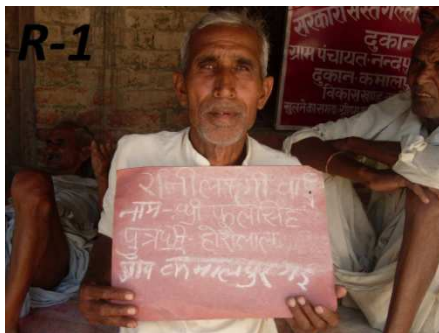 R-1
सरकारी सस्ते गल्ले
दुकान
ग्राम पंचायत-नन्दप
दुकान-कमाल
विकास खण्ड
रानी लक्ष्मी वाई
नाम-श्री फूलसिंह
पुत्र श्री-हीरालाल
ग्राम कमालपुर गई